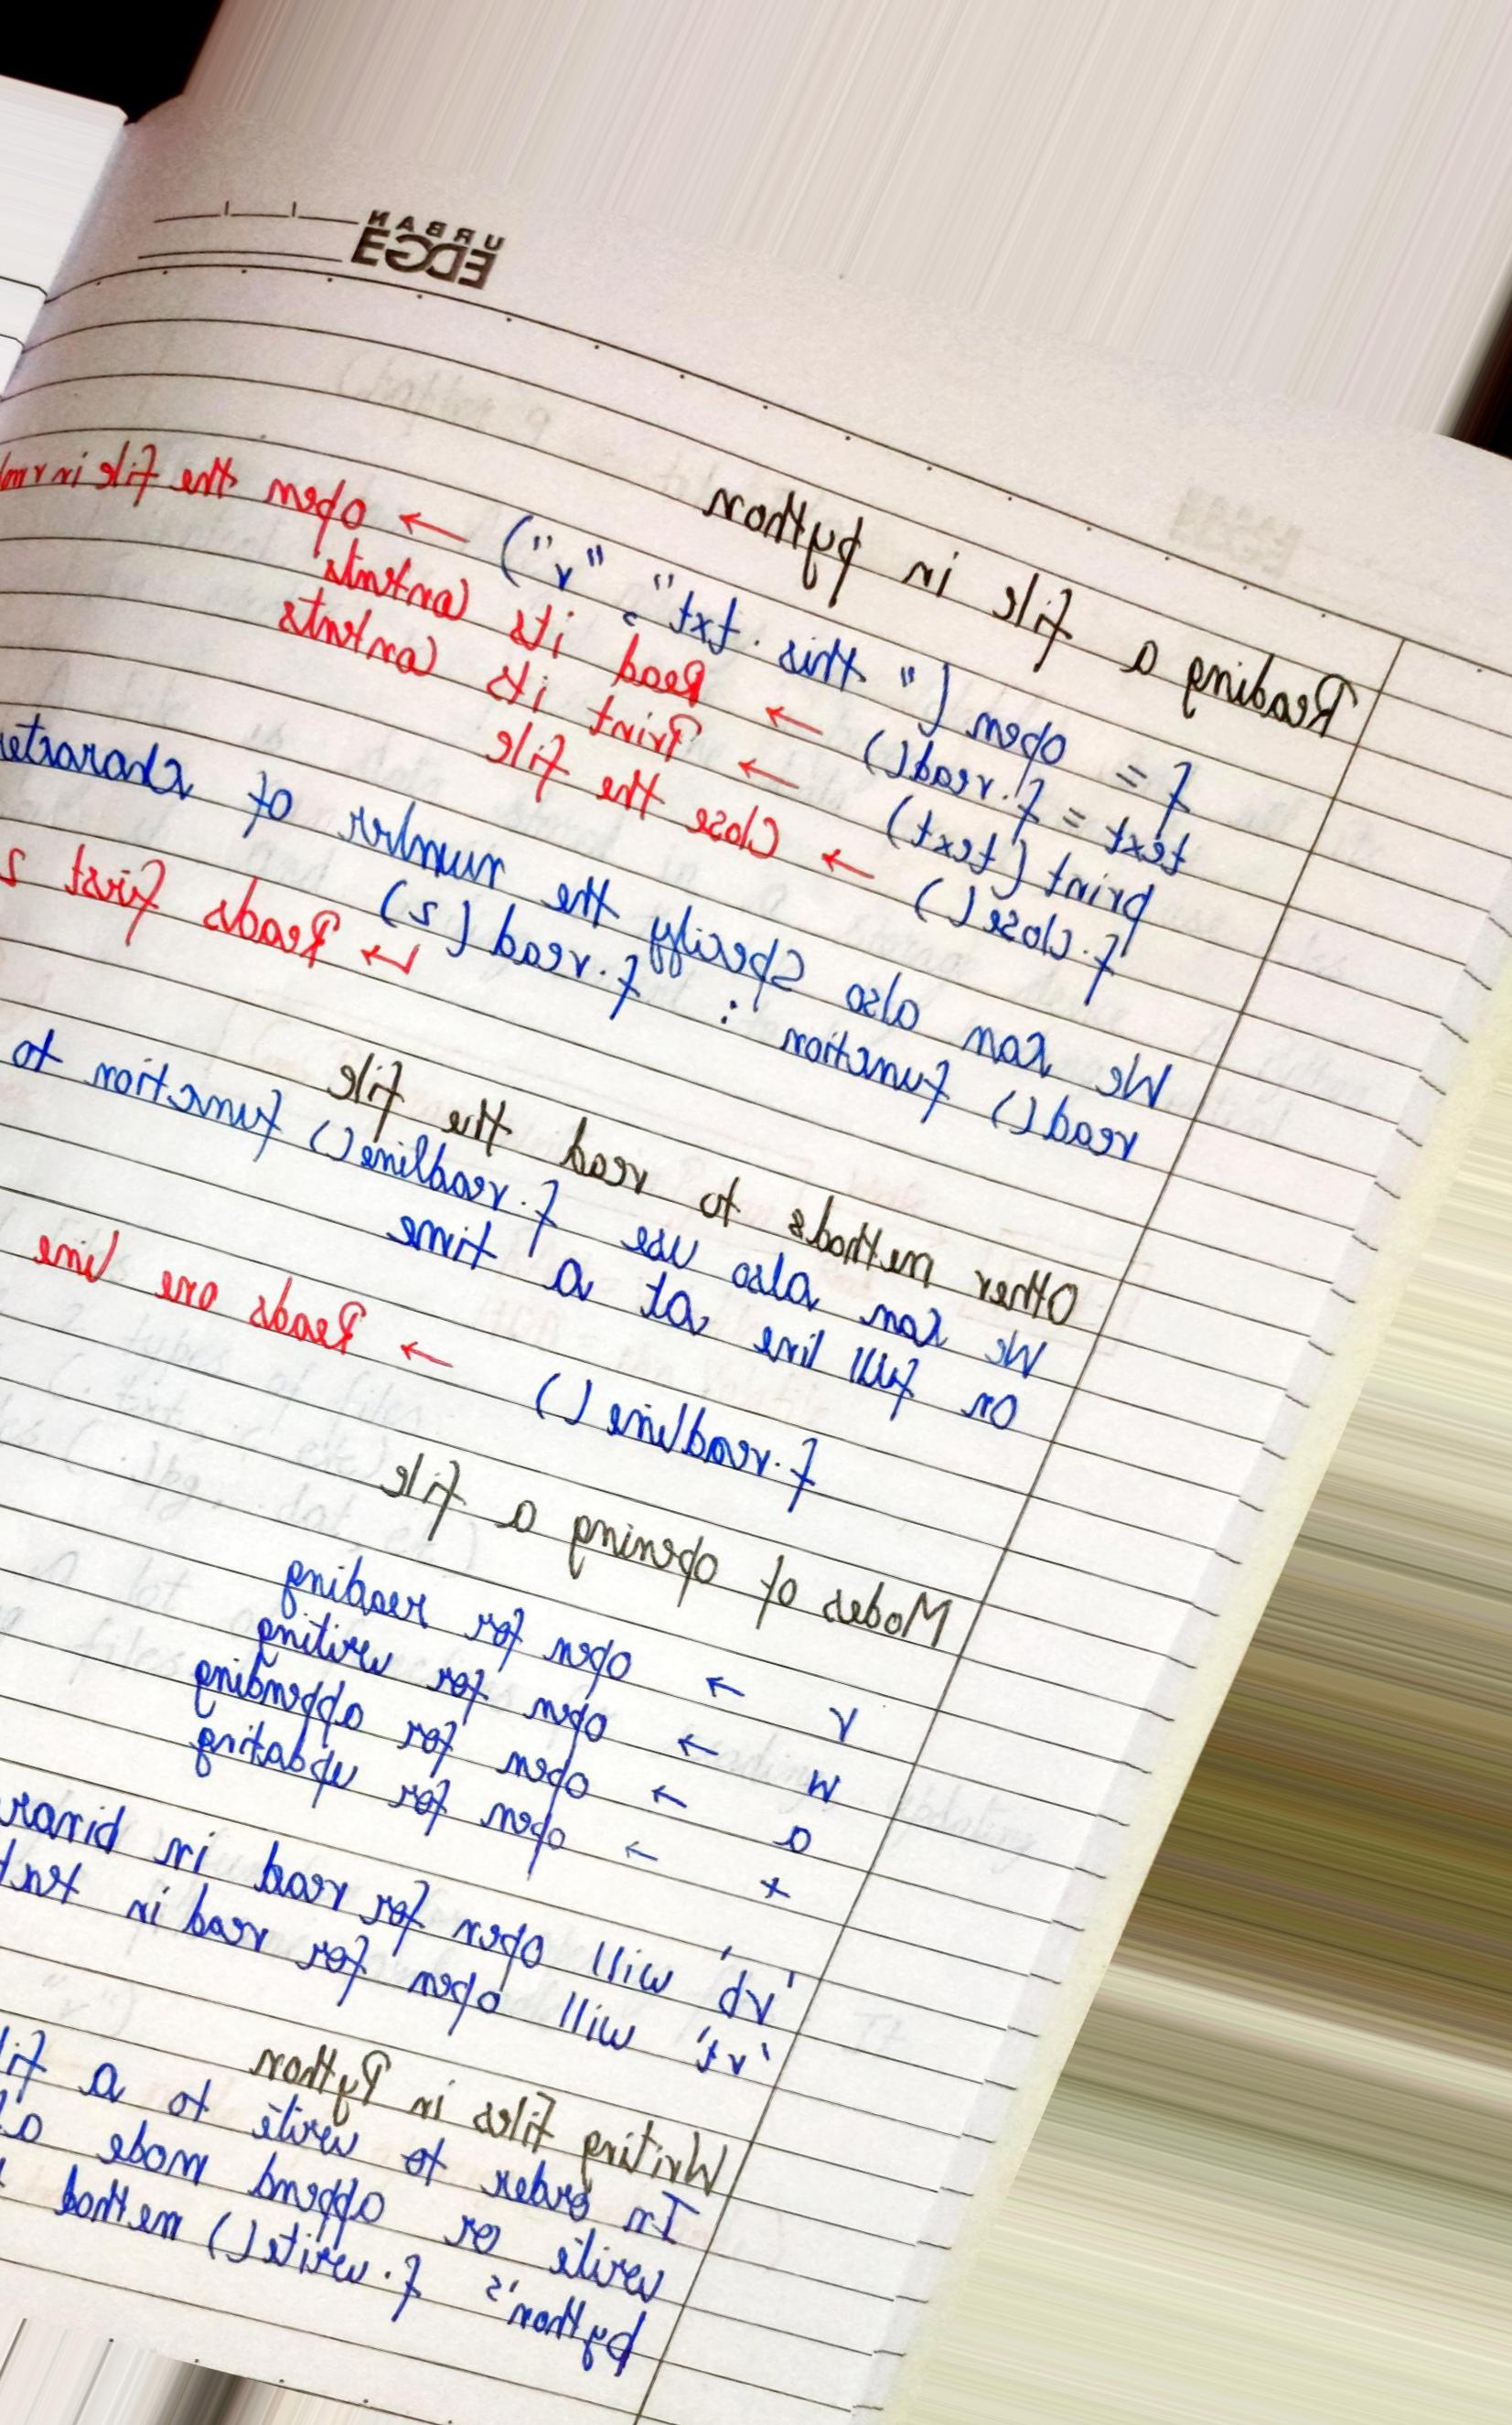 URBAN
EDGE
Reading a file in python
f = open ("this.txt", "r") → open the file in r
text = f.read() → Read its contents
print (text) → Print its contents
f.close() → Close the file
We can also specify the number of
read() function : f.read(2)
↳ Reads first 2
Other methods to read the file
We can also use f.readline() function to
on full line at a time
f.readline() → Reads one line
Modes of opening a file
r → open for reading
w → open for writing
a → open for appending
+ → open for updating
'rb' will open for read in
'rt' will open for read in
Writing files in Python
In order to write to a
write or append mode
python's f.write() method